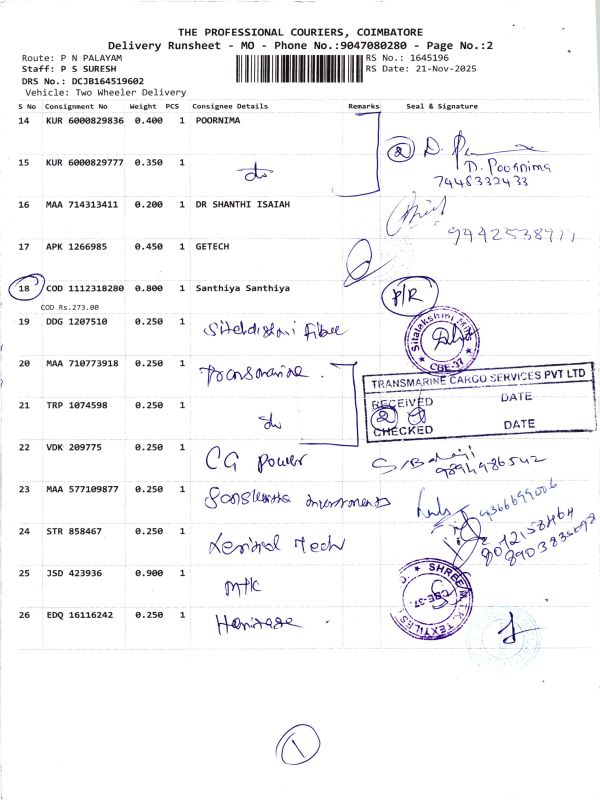 THE PROFESSIONAL COURIERS, COIMBATORE
Delivery Runsheet - MO - Phone No.:9047080280 - Page No.:2
Route: P N PALAYAM
RS No.: 1645196
Staff: P S SURESH
RS Date: 21-Nov-2025
DRS No.: DCJB164519602
Vehicle: Two Wheeler Delivery
S No Consignment No Weight PCS Consignee Details Remarks Seal & Signature
14 KUR 6000829836 0.400 1 POORNIMA
2 D. Poornima
7448332433
15 KUR 6000829777 0.350 1 do
16 MAA 714313411 0.200 1 DR SHANTHI ISAIAH
17 APK 1266985 0.450 1 GETECH
18 COD 1112318280 0.800 1 Santhiya Santhiya P/R
COD Rs.273.00
19 DDG 1207510 0.250 1
CBE-37
20 MAA 710773918 0.250 1 Transmarine
TRANSMARINE CARGO SERVICES PVT LTD
RECEIVED DATE
2
CHECKED DATE
21 TRP 1074598 0.250 1 do
22 VDK 209775 0.250 1 CG power
9894986542
23 MAA 577109877 0.250 1
24 STR 858467 0.250 1 Tech
25 JSD 423936 0.900 1 MTK
SHREE M.T.K. TEXTILES
CBE-37
26 EDQ 16116242 0.250 1
1